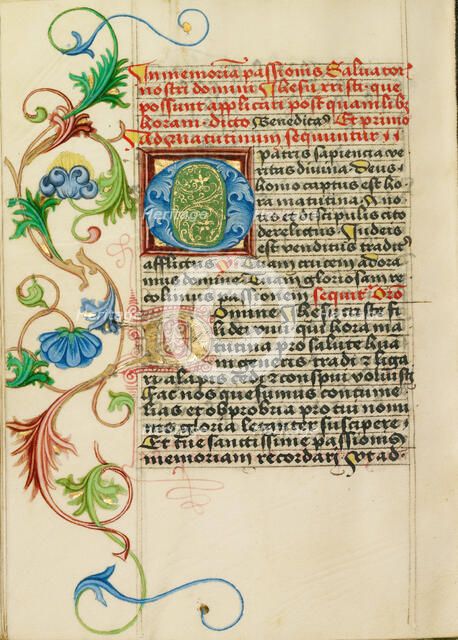 In memoria passionis Saluator
nostri domini Ihesu xristi que
possunt applicari post quamlib
horam dicto Benedicam9 Et primo
Ad matutinum sequuntur
O patris sapiencia ve
ritas diuina deus
homo captus est ho
ra matutina
discipulis cito
derelictus Iudeis
est venditus tradit9
afflictus crucem adora
mus domine gloriosam re
colimus passionem sequit Oro
Domine Ihesu xriste fi
li dei viui qui hora ma
tutina pro salute hu
generis tradi liga
ri alapis cedi et conspui voluisti
fac nos quesumus contume
lias et obprobria pro tui nomi
nis gloria letanter suscipere
Et tue sanctissime passionis
memoriam recordari vt ad
Heritage